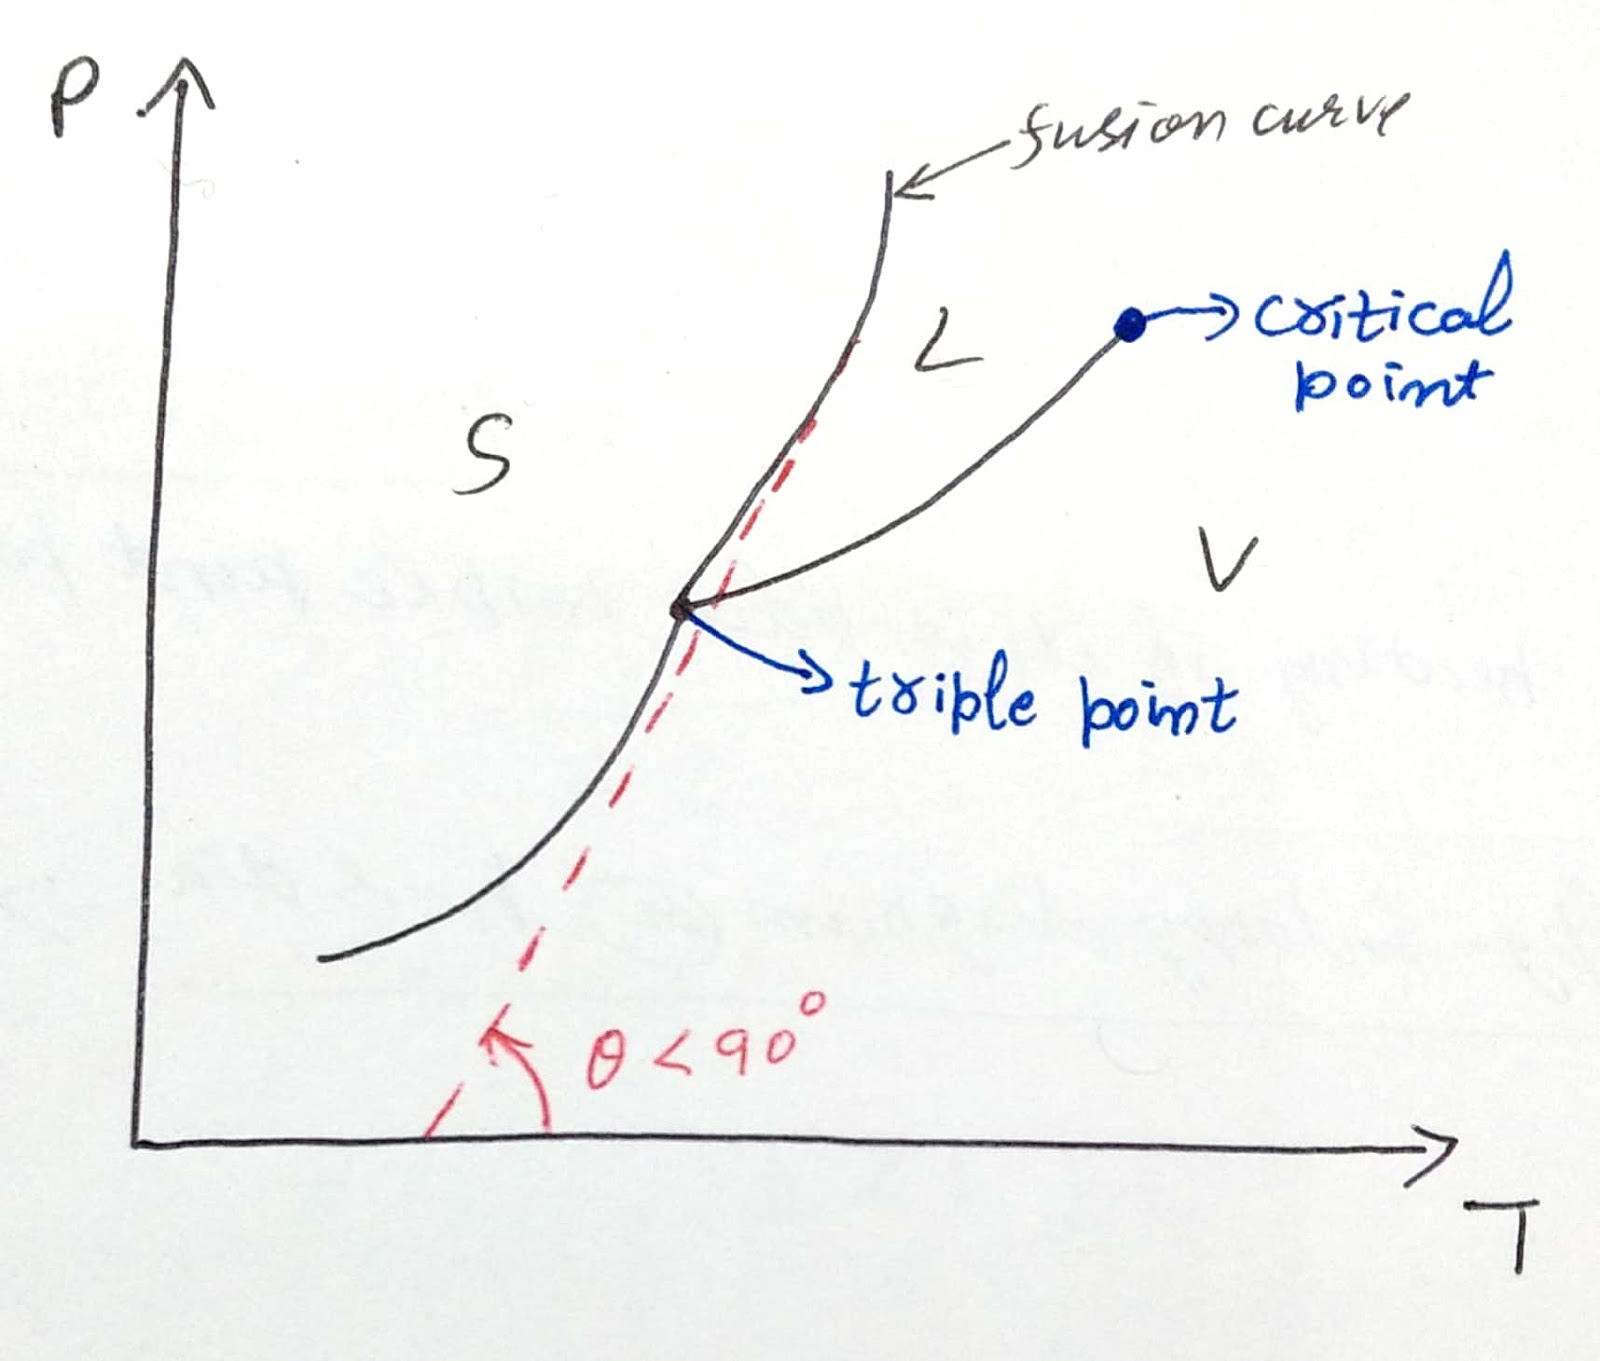 P
fusion curve
L
critical
point
S
V
triple point
θ < 90°
T